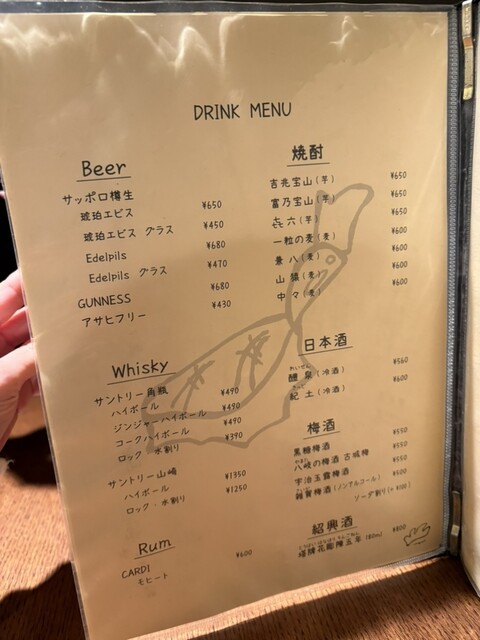 DRINK MENU
Beer
サッポロ樽生
琥珀エビス ¥650
琥珀エビス グラス ¥450
Edelpils ¥680
Edelpils グラス ¥470
GUNNESS ¥680
アサヒフリー ¥430
Whisky
サントリー角瓶
ハイボール ¥490
ジンジャーハイボール ¥490
コークハイボール ¥490
ロック・水割り ¥390
サントリー山崎
ハイボール ¥1350
ロック・水割り ¥1250
Rum
CARDI
モヒート ¥600
焼酎
吉兆宝山(芋) ¥650
富乃宝山(芋) ¥650
㐂六(芋) ¥650
一粒の麦(麦) ¥600
兼八(麦) ¥600
山猿(麦) ¥600
中々(麦) ¥600
日本酒
醴泉(冷酒) ¥560
紀土(冷酒) ¥600
梅酒
黒糖梅酒 ¥550
八岐の梅酒 古城梅 ¥550
宇治玉露梅酒 ¥550
雑賀梅酒(ノンアルコール) ¥500
ソーダ割り(+¥100)
紹興酒
塔牌花彫陳五年(80ml) ¥800